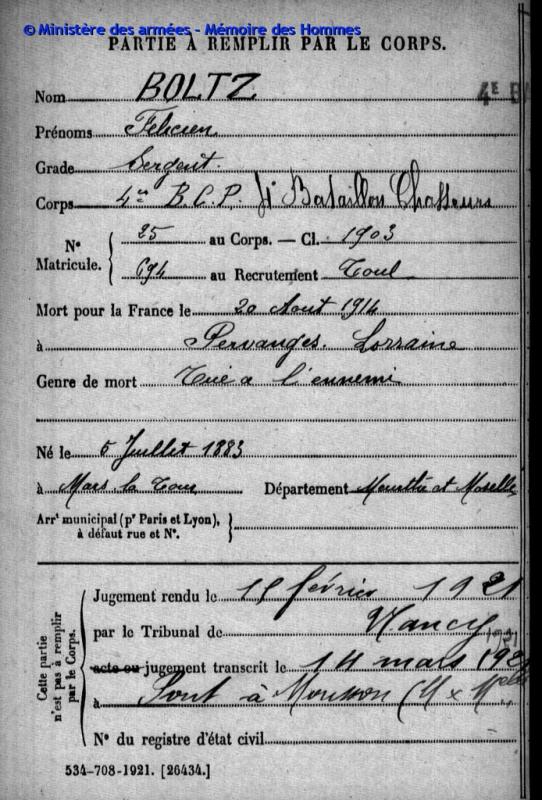 © Ministère des armées - Mémoire des Hommes
PARTIE À REMPLIR PAR LE CORPS.
Nom BOLTZ
4E BA
Prénoms Felicien
Grade Sergent.
Corps 4e B.C.P. 4e Bataillon Chasseurs
N° Matricule. { 25 au Corps. — Cl. 1903
694 au Recrutement Toul
Mort pour la France le 20 Aout 1914
à Pervanges. Lorraine
Genre de mort Tué a l'ennemi
Né le 5 Juillet 1883
à Mars la Tour Département Meurthe et Moselle
Arrt municipal (pr Paris et Lyon), }
à défaut rue et N°.
Cette partie n'est pas à remplir par le Corps.
Jugement rendu le 15 février 1921
par le Tribunal de Nancy
acte ou jugement transcrit le 14 mars 1921
1921
à Pont à Mousson (M x Mlle)
N° du registre d'état civil
534-708-1921. [26434.]